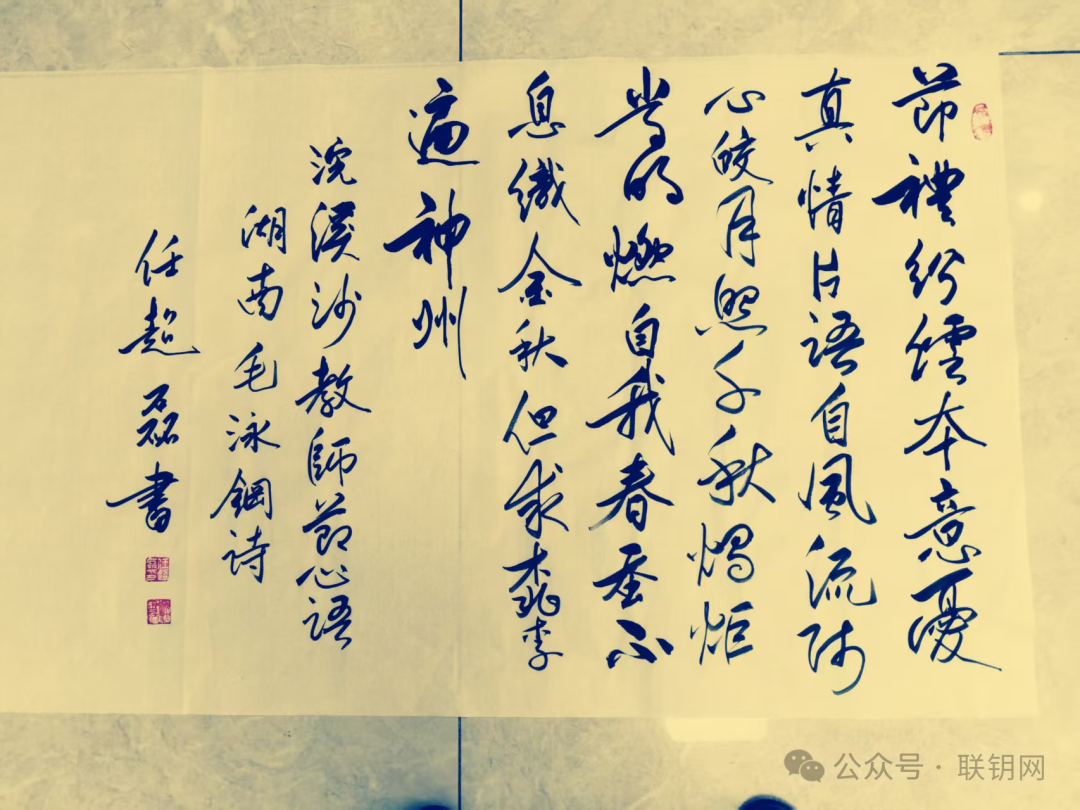 節禮紛本意憂
真情片語自風流师
心皎月照千秋燭炬
常明燃自我春蚕不
息織金秋但求桃李
遍神州
浣溪沙教師節心語
湖南毛泳鋼詩
任超磊書
公众号·联钥网